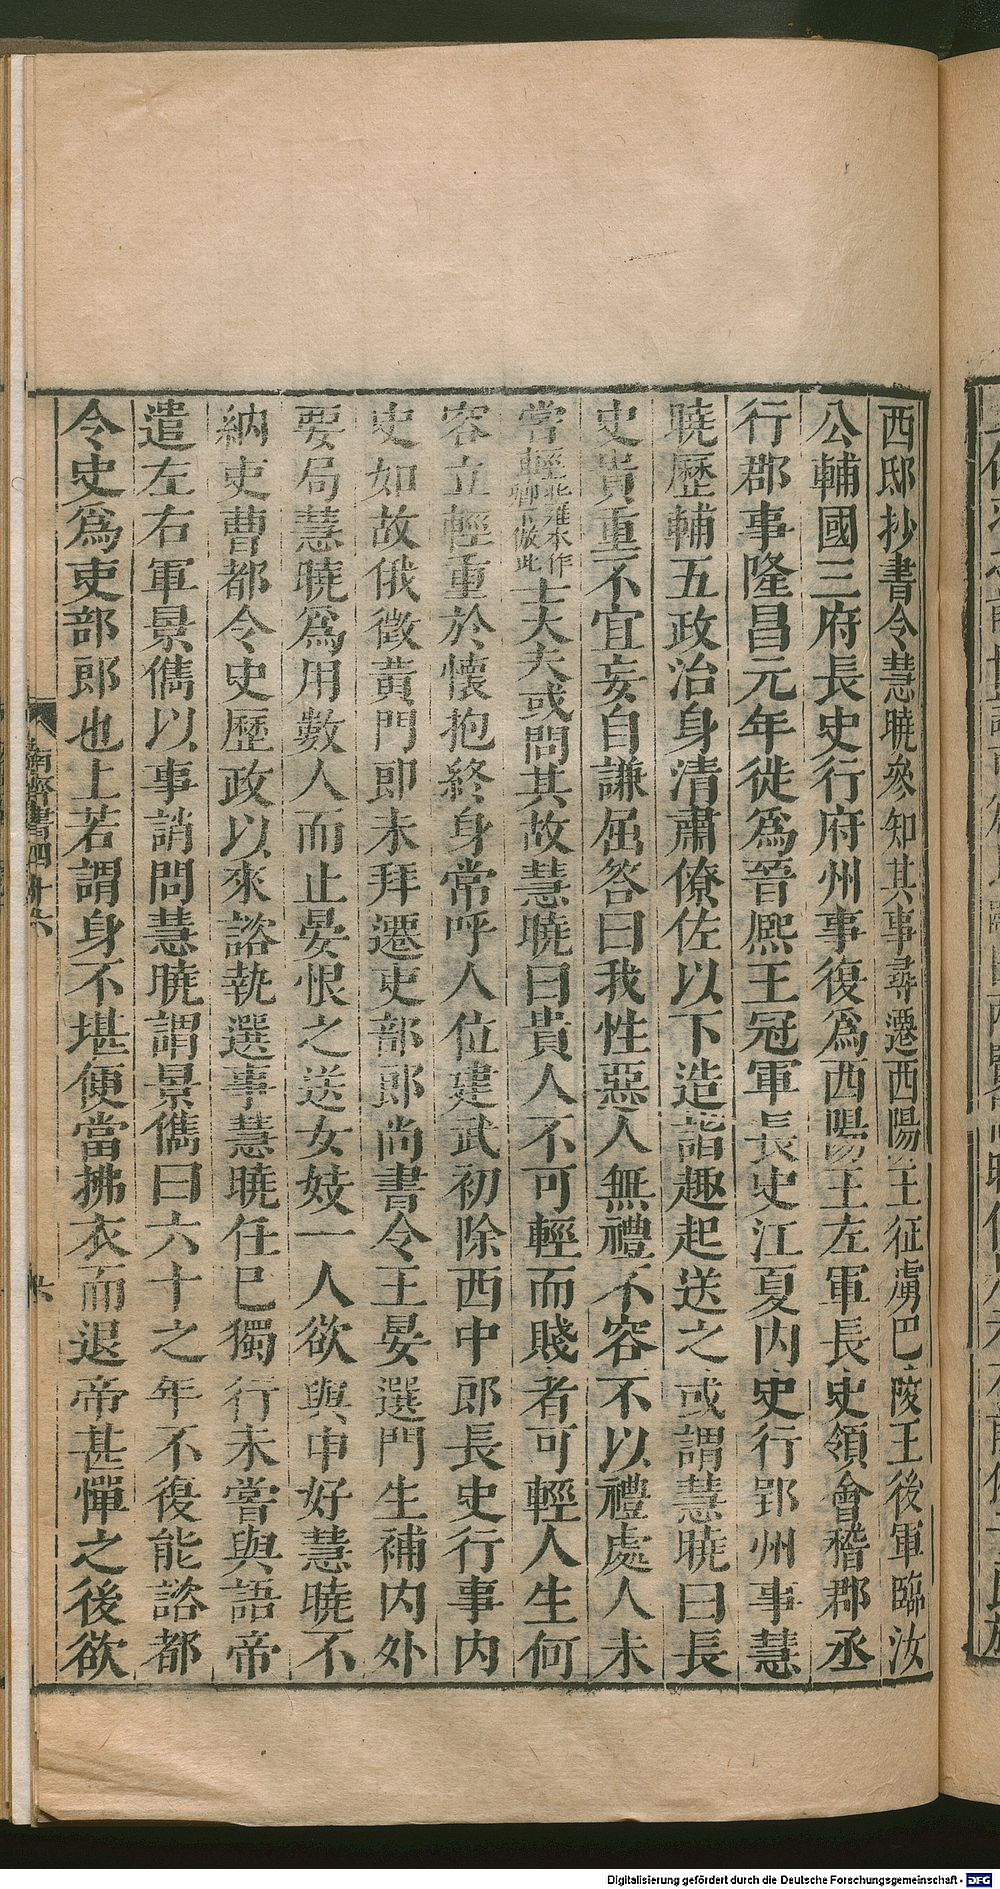 西邸抄書令慧曉參知其事尋遷西陽王征虜巴陵王後軍臨汝
公輔國三府長史行府州事復爲西陽王左軍長史領會稽郡丞
行郡事隆昌元年徙爲晉熙王冠軍長史江夏內史行郢州事慧
曉歷輔五政治身清肅僚佐以下造詣趣起送之或謂慧曉曰長
史貴重不宜妄自謙屈答曰我性惡人無禮不容不以禮處人未
嘗輕北雍本作卿下倣此士大夫或問其故慧曉曰貴人不可輕而賤者可輕人生何
容立輕重於懷抱終身常呼人位建武初除西中郎長史行事內
史如故俄徵黃門郎未拜遷吏部郎尚書令王晏選門生補內外
要局慧曉爲用數人而止晏恨之送女妓一人欲與申好慧曉不
納吏曹都令史歷政以來諮執選事慧曉任已獨行未嘗與語帝
遣左右單景儁以事誚問慧曉謂景儁曰六十之年不復能諮都
令史爲吏部郎也上若謂身不堪便當拂衣而退帝甚憚之後欲
南齊書四十六
Digitalisierung gefördert durch die Deutsche Forschungsgemeinschaft - DFG